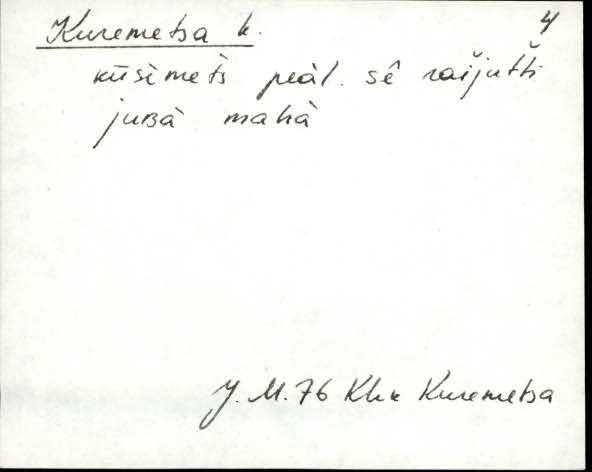 Kuremetsa k. 4
kūsimets peàl. sê raijutti
jusà mahà
J. M. 76 Khk Kuremetsa